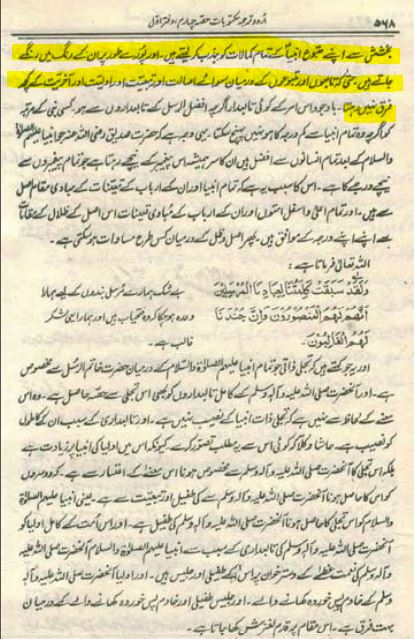 ۵۶۸ اُردو ترجمہ مکتوبات حصہ چہارم، دفتر اول
بخشش سے اپنے متبوع انبیا کے تمام کمالات کو جذب کر لیتے ہیں۔ اور پورے طور پر ان کے رنگ میں رنگے
جاتے ہیں۔ حتیٰ کہ تابعوں اور متبوعوں کے درمیان سوائے اصالت اور تبعیت اور اولیت اور آخریت کے کچھ
فرق نہیں رہتا۔ باوجود اس امر کے کوئی تابعدار اگرچہ افضل الرسل کے تابعداروں سے ہو کسی نبی کے مرتبہ
کو اگرچہ وہ تمام انبیا سے کم درجہ کا ہو نہیں پہنچ سکتا۔ یہی وجہ ہے کہ حضرت صدیق رضی اللہ عنہ جو انبیا علیہم الصلوٰۃ
والسلام کے بعد تمام انسانوں سے افضل ہیں ان کا سر ہمیشہ اس پیغمبر کے نیچے رہتا ہے جو تمام پیغمبروں سے
نیچے درجے کا ہے۔ اس کا سبب یہ ہے کہ تمام انبیا اور ان کے ارباب کے تعینات کے مبادی مقام اصل
سے ہیں۔ اور تمام اعلیٰ و اسفل امتوں اور ان کے ارباب کے مبادی تعینات اس اصل کے ظلال کے مقامات
سے اپنے اپنے درجہ کے موافق ہیں۔ پھر اصل و ظل کے درمیان کس طرح مساوات ہو سکتی ہے۔
اللہ تعالیٰ فرماتا ہے:
وَلَقَدْ سَبَقَتْ كَلِمَتُنَا لِعِبَادِنَا الْمُرْسَلِيْنَ بے شک ہمارے مُرسل بندوں کے لیے ہمارا
اِنَّهُمْ لَهُمُ الْمَنْصُوْرُوْنَ وَاِنَّ جُنْدَنَا وعدہ ہو چکا کہ وہ فتحیاب ہیں اور ہمارا ہی لشکر
لَهُمُ الْغَالِبُوْنَ۔ غالب ہے۔
اور یہ جو کہتے ہیں کہ تجلی ذاتی جو تمام انبیا علیہم الصلوٰۃ والسلام کے درمیان حضرت خاتم الرسل سے مخصوص
ہے۔ اور آنحضرت صلی اللہ علیہ وآلہ وسلم کے کامل تابعداروں کو بھی اس تجلی سے حصہ حاصل ہے۔ وہ اس
معنے کے لحاظ سے نہیں ہے کہ تجلی ذات انبیا کے نصیب نہیں ہے۔ اور تابعداری کے سبب ان کے کاملوں
کو نصیب ہے، حاشا و کلا کہ کوئی اس سے یہ مطلب تصور کرے کیونکہ اس میں اولیا کی انبیا پر زیادت ہے
بلکہ اس تجلی کا آنحضرت صلی اللہ علیہ وآلہ وسلم سے مخصوص ہونا اس معنے کے اعتبار سے ہے۔ کہ دوسروں
کو اس کا حاصل ہونا آنحضرت صلی اللہ علیہ وآلہ وسلم کی طفیل اور تبعیت سے ہے۔ یعنی انبیا علیہم الصلوٰۃ
والسلام کو اس تجلی کا حاصل ہونا آنحضرت صلی اللہ علیہ وآلہ وسلم کی طفیل ہے۔ اور اس اُمت کے کامل اولیا کو
آنحضرت صلی اللہ علیہ وآلہ وسلم کی تابعداری کے سبب سے انبیا علیہم الصلوٰۃ والسلام آنحضرت صلی اللہ علیہ وآلہ
وسلم کی نعمت عظمےٰ کے دسترخوان پر اس کے طفیلی اور جلیس ہیں۔ اور اولیا آنحضرت صلی اللہ علیہ وآلہ
وسلم کے خادم پس خوردہ کھانے والے۔ اور جلیس طفیلی اور خادم پس خوردہ کھانے والے کے درمیان
بہت فرق ہے۔ اس مقام پر قدم لغزش کھا جاتا ہے۔